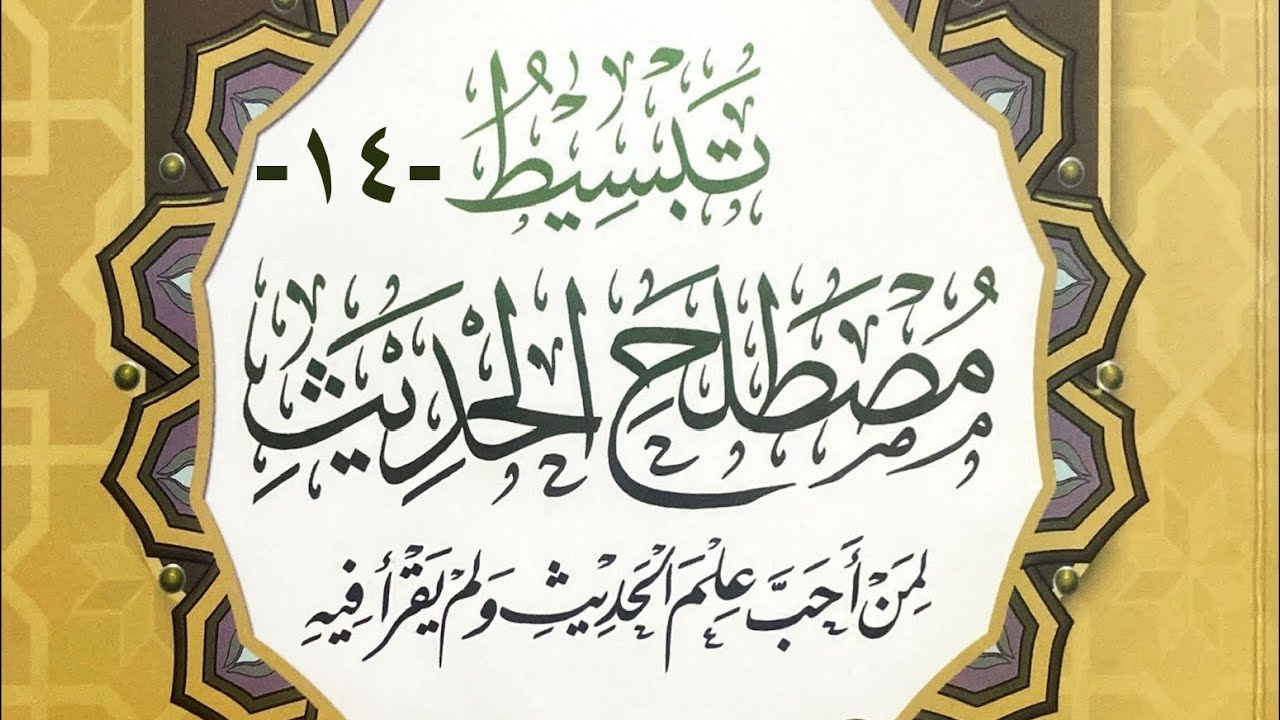 تَبْسِيْطُ -١٤-
مُصْطَلَحِ الحَدِيْثِ
لِمَنْ أَحَبَّ عِلْمَ الْحَدِيْثِ وَلَمْ يَقْرَأْ فِيْهِ